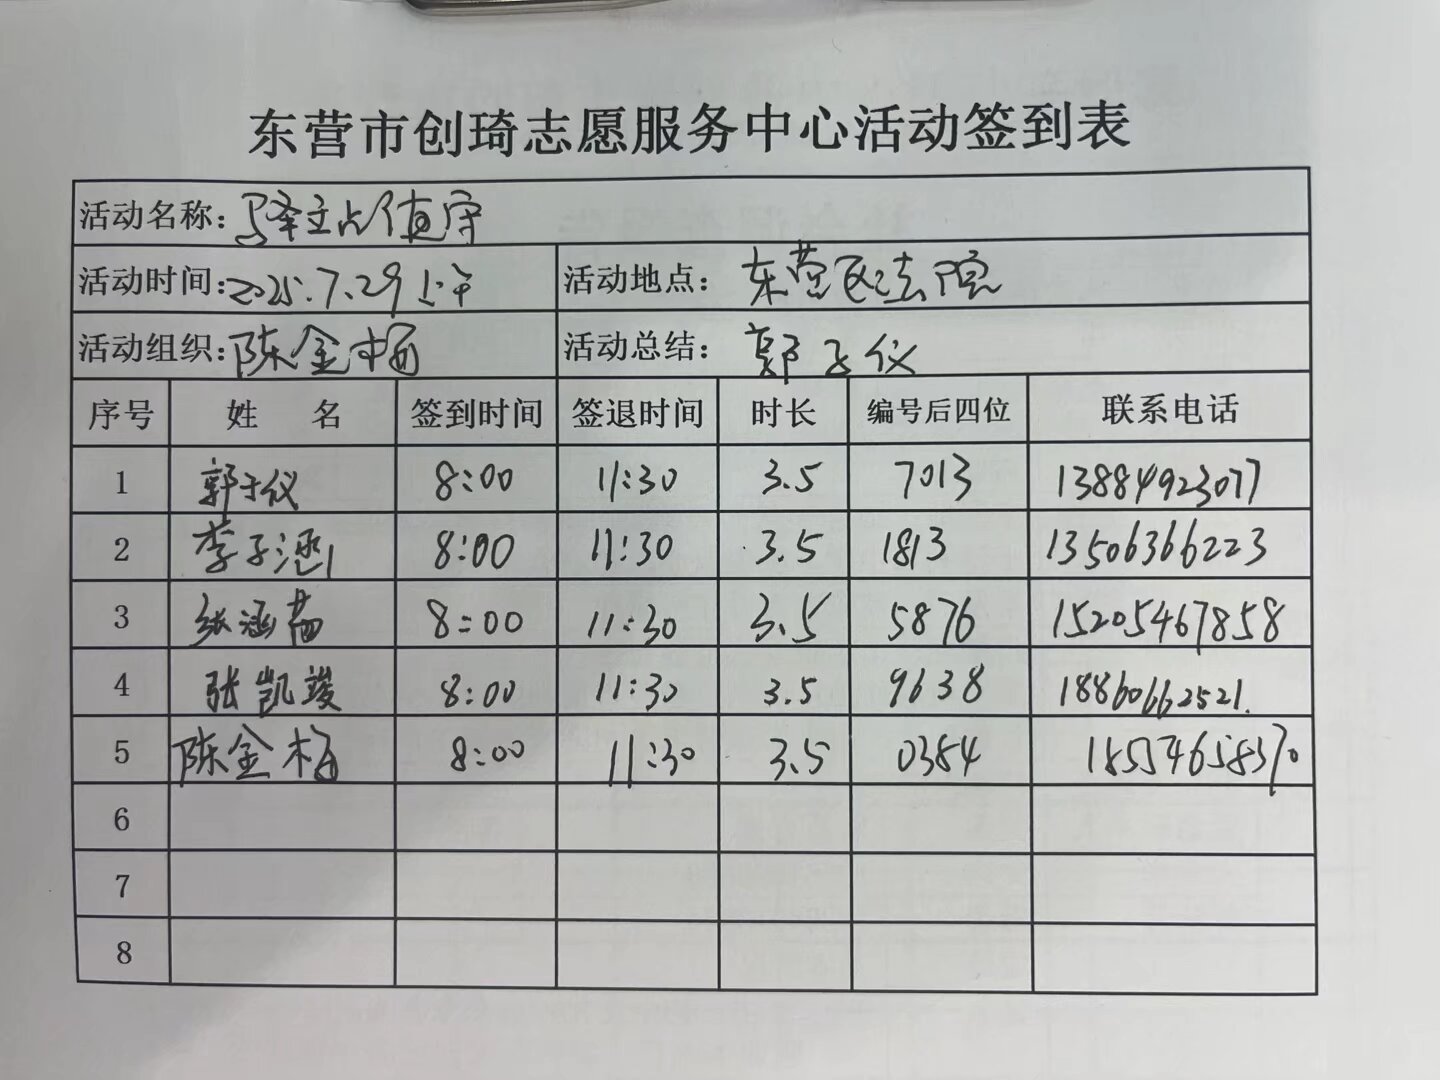 东营市创琦志愿服务中心活动签到表
活动名称: 泽主占值守
活动时间: 2025.7.29 上午 活动地点: 东营区法院
活动组织: 陈金梅 活动总结: 郭子仪
序号 姓 名 签到时间 签退时间 时长 编号后四位 联系电话
1 郭子仪 8:00 11:30 3.5 7013 13884923077
2 李子涵 8:00 11:30 3.5 1813 13506366223
3 张涵茜 8:00 11:30 3.5 5876 15205467858
4 张凯竣 8:00 11:30 3.5 9638 18860662521.
5 陈金梅 8:00 11:30 3.5 0384 18554658370
6
7
8